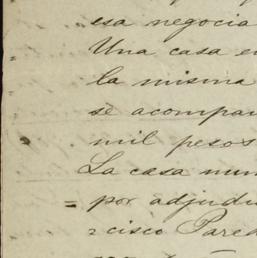 esa negocia
Una casa en
la misma
se acompañ
mil pesos
La casa num
= por adjudi
cisco Pared